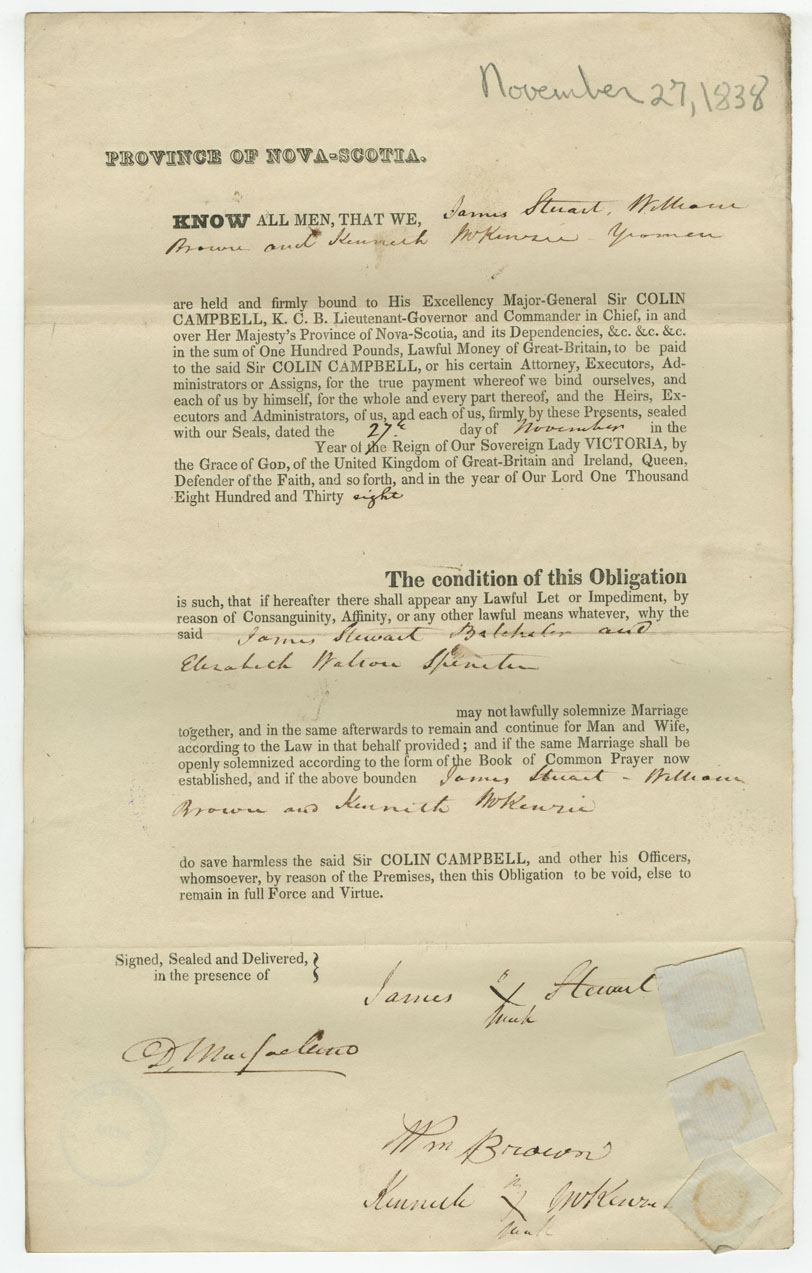 November 27, 1838
PROVINCE OF NOVA-SCOTIA.
KNOW ALL MEN, THAT WE, James Stuart, William
Brown and Kenneth McKenzie Yeomen
are held and firmly bound to His Excellency Major-General Sir COLIN
CAMPBELL, K. C. B. Lieutenant-Governor and Commander in Chief, in and
over Her Majesty's Province of Nova-Scotia, and its Dependencies, &c. &c. &c.
in the sum of One Hundred Pounds, Lawful Money of Great-Britain, to be paid
to the said Sir COLIN CAMPBELL, or his certain Attorney, Executors, Ad-
ministrators or Assigns, for the true payment whereof we bind ourselves, and
each of us by himself, for the whole and every part thereof, and the Heirs, Ex-
ecutors and Administrators, of us, and each of us, firmly by these Presents, sealed
with our Seals, dated the 27th day of November in the
Year of the Reign of Our Sovereign Lady VICTORIA, by
the Grace of GOD, of the United Kingdom of Great-Britain and Ireland, Queen,
Defender of the Faith, and so forth, and in the year of Our Lord One Thousand
Eight Hundred and Thirty eight
The condition of this Obligation
is such, that if hereafter there shall appear any Lawful Let or Impediment, by
reason of Consanguinity, Affinity, or any other lawful means whatever, why the
said James Stewart Batchelor and
Elizabeth Watson Spinster
may not lawfully solemnize Marriage
together, and in the same afterwards to remain and continue for Man and Wife,
according to the Law in that behalf provided; and if the same Marriage shall be
openly solemnized according to the form of the Book of Common Prayer now
established, and if the above bounden James Stuart - William
Brown and Kenneth McKenzie
do save harmless the said Sir COLIN CAMPBELL, and other his Officers,
whomsoever, by reason of the Premises, then this Obligation to be void, else to
remain in full Force and Virtue.
Signed, Sealed and Delivered,
in the presence of
James X Stewart
mark
Wm Brown
Kenneth X McKenzie
mark